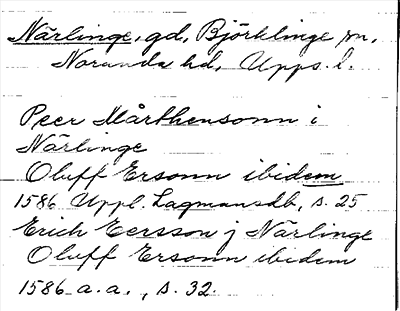 Närlinge, gd, Björklinge sn,
Norunda hd, Upps. l.
Peer Mårthensonn i
Närlinge
Oluff Ersonn ibidem
1586 Uppl. Lagmansdb, s. 25
Erich Eersson j Närlinge
Oluff Ersonn ibidem
1586 a.a., s. 32.